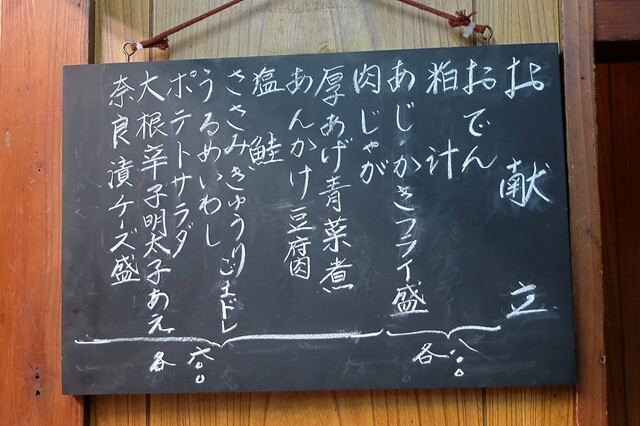 お献立
おでん
粕汁
あじ・かきフライ盛
各
肉じゃが
厚あげ青菜煮
あんかけ豆腐
塩鮭
ささみきゅうりごまドレ
うるめいわし
ポテトサラダ
大根辛子明太子あえ
奈良漬チーズ盛
各六〇〇